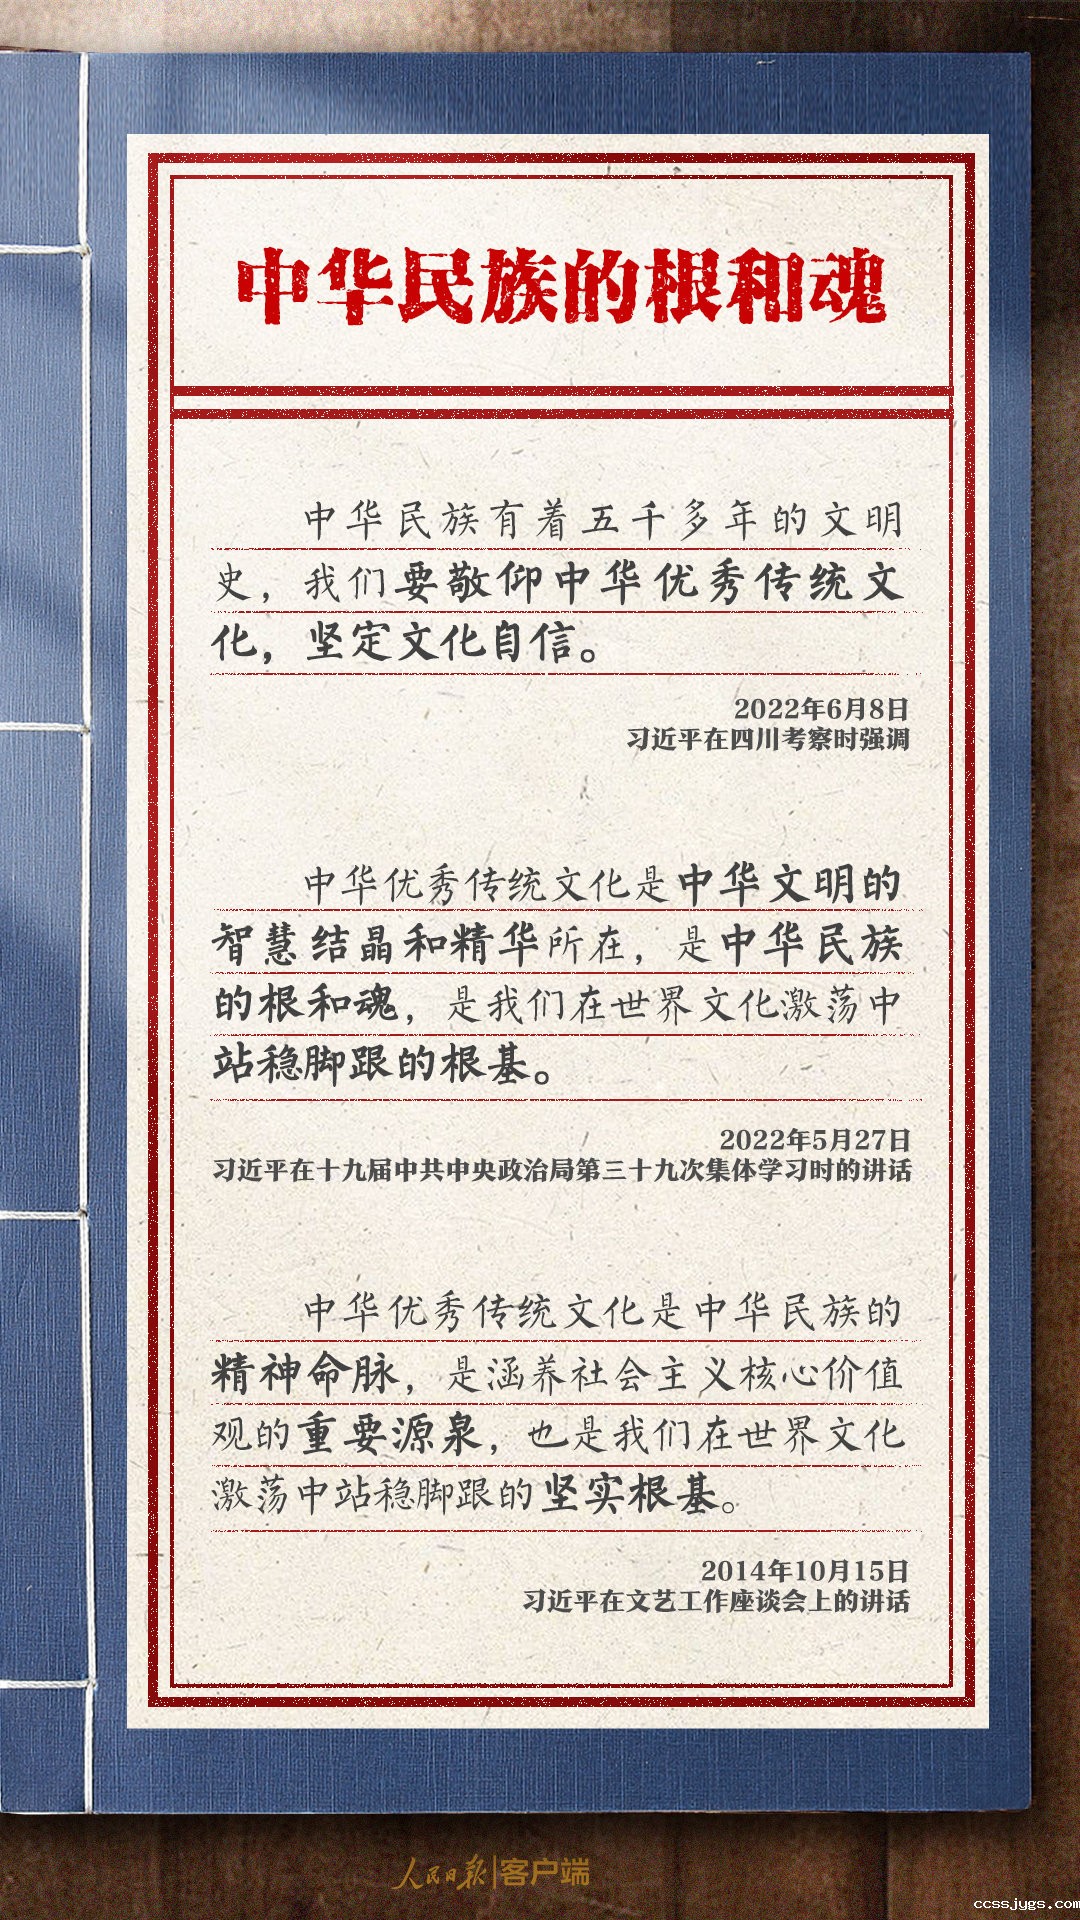 中华民族的根和魂
中华民族有着五千多年的文明
史，我们要敬仰中华优秀传统文
化，坚定文化自信。
2022年6月8日
习近平在四川考察时强调
中华优秀传统文化是中华文明的
智慧结晶和精华所在，是中华民族
的根和魂，是我们在世界文化激荡中
站稳脚跟的根基。
2022年5月27日
习近平在十九届中共中央政治局第三十九次集体学习时的讲话
中华优秀传统文化是中华民族的
精神命脉，是涵养社会主义核心价值
观的重要源泉，也是我们在世界文化
激荡中站稳脚跟的坚实根基。
2014年10月15日
习近平在文艺工作座谈会上的讲话
人民日报|客户端
ccssjygs.com